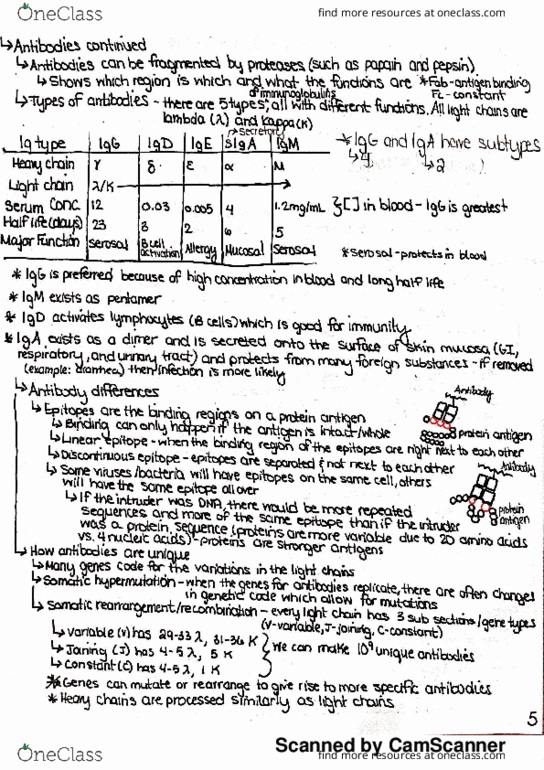 OneClass
find more resources at oneclass.com
↳Antibodies continued
↳Antibodies can be fragmented by proteases (such as papain and pepsin)
↳Shows which region is which and what the functions are *Fab-antigen binding
Fc - constant
of immunoglobulins
↳Types of antibodies - there are 5 types; all with different functions. All light chains are
lambda (λ) and kappa (K)
→secretory
Ig type IgG IgD IgE sIgA IgM
Heavy chain γ δ ε α M
Light chain λ/K
Serum Conc. 12 0.03 0.005 4 1.2mg/mL }[] in blood - IgG is greatest
Half life (days) 23 3 2 6 5
Major Function Serosal B cell activation Allergy Mucosal Serosal
*IgG and IgA have subtypes
↳4 ↳2
*serosal - protects in blood
* IgG is preferred because of high concentration in blood and long half life
* IgM exists as pentamer
* IgD activates lymphocytes (B cells) which is good for immunity
* IgA exists as a dimer and is secreted onto the surface of skin mucosa (GI,
respiratory, and urinary tract) and protects from many foreign substances - if removed
(example: diarrhea) then infection is more likely
↳Antibody differences
↳Epitopes are the binding regions on a protein antigen
↳Binding can only happen if the antigen is intact/whole
↳Linear epitope - when the binding region of the epitopes are right next to each other
↳Discontinuous epitope - epitopes are separated & not next to each other
↳Some viruses/bacteria will have epitopes on the same cell, others
will have the same epitope all over
↳If the intruder was DNA, there would be more repeated
sequences and more of the same epitope than if the intruder
was a protein sequence (proteins are more variable due to 20 amino acids
vs. 4 nucleic acids) - proteins are stronger antigens
Antibody
protein antigen
Antibody
protein
antigen
↳How antibodies are unique
↳Many genes code for the variations in the light chains
↳Somatic hypermutation - when the genes for antibodies replicate, there are often changes
in genetic code which allow for mutations
↳Somatic rearrangement/recombination - every light chain has 3 sub sections/gene types
(V-variable, J-joining, C-constant)
↳Variable (V) has 29-33 λ, 31-36 K
↳Joining (J) has 4-5 λ, 5 K
↳Constant (C) has 4-5 λ, 1 K
}We can make 10⁹ unique antibodies
* Genes can mutate or rearrange to give rise to more specific antibodies
* Heavy chains are processed similarly as light chains
5
Scanned by CamScanner
OneClass
find more resources at oneclass.com